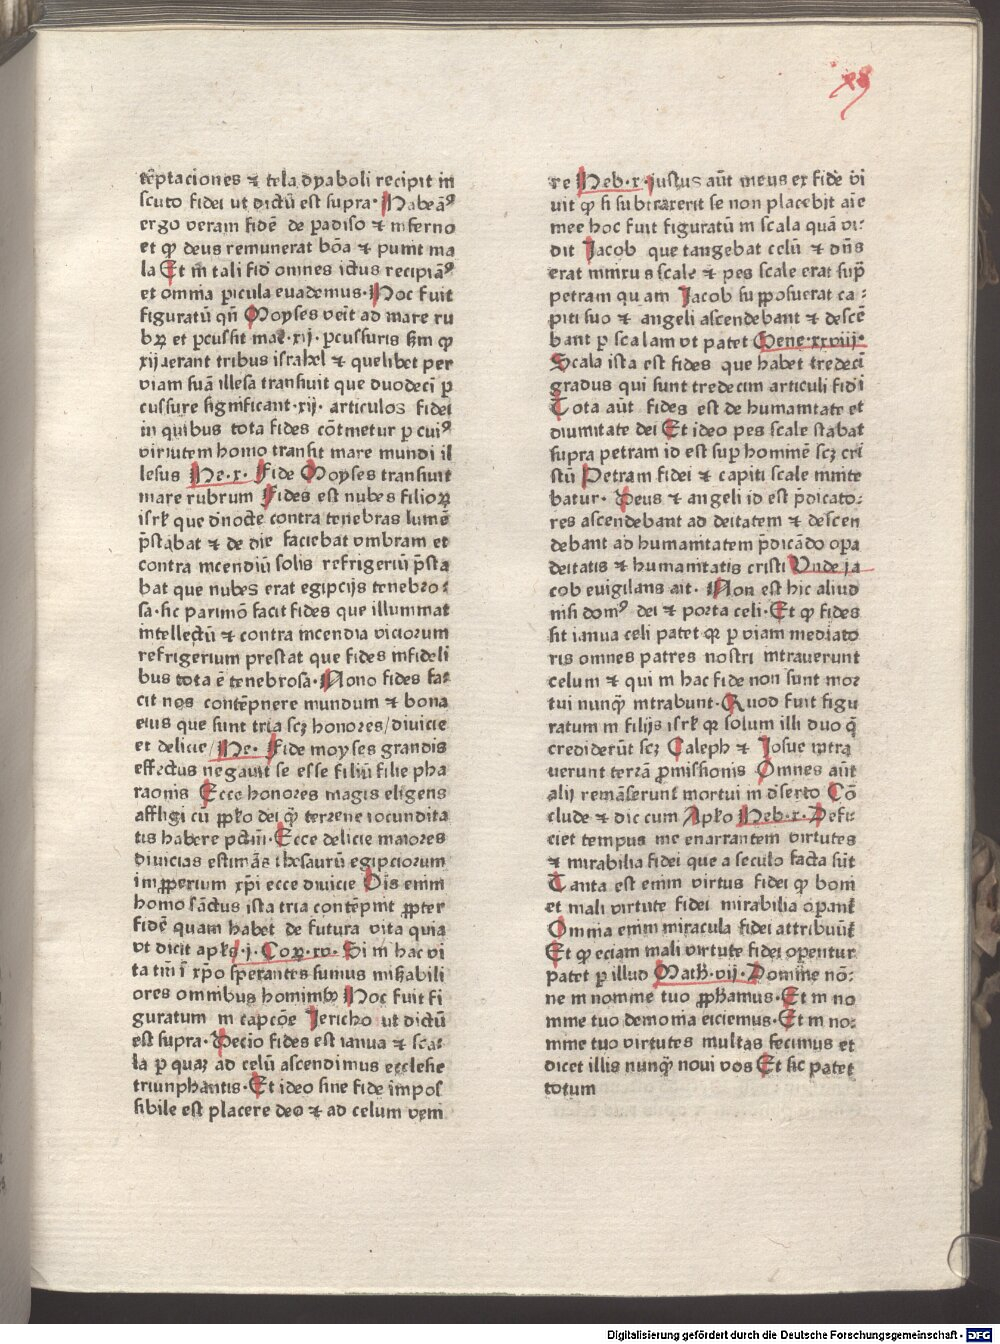 tēptaciones ⁊ tela dyaboli recipit in
scuto fidei ut dictū est supra· Habeāꝰ
ergo veram fidē de padiso ⁊ inferno
et ꝙ deus remunerat bōa ⁊ punit ma
la Et in tali fid omnes ictus recipiāꝰ
et omnia pericula euademus· Hoc fuit
figuratū qn̄ Moyses veit ad mare ru
bꝝ et ꝑcussit mare ·xij· ꝑcussuris s̄m ꝙ
xij erant tribus israhel ⁊ quelibet per
viam suā illesa transiuit que duodeci ꝑ
cussure significant ·xij· articulos fidei
in quibus tota fides cōtinetur ꝑ cuiꝰ
virtutem homo transit mare mundi il
lesus He·x· Fide Moyses transiuit
mare rubrum Fides est nubes filioꝝ
isrl̄ que dinocte contra tenebras lumē
p̄stabat ⁊ de die faciebat vmbram et
contra incendiū solis refrigeriū p̄sta
bat que nubes erat egipcijs tenebro⸗
sa· sic parimō facit fides que illuminat
intellectū ⁊ contra incendia viciorum
refrigerium prestat que fides infideli
bus tota ē tenebrosa· Nono fides fa⸗
cit nos contēpnere mundum ⁊ bona
eius que sunt tria scꝫ honores/diuicie
et delicie/ He· Fide moyses grandis
effectus negauit se esse filiū filie pha
raonis Ecce honores magis eligens
affligi cū pp̄lo dei ꝙ̄ terrene iocundita
tis habere pctīn· Ecce delicie maiores
diuicias estimās thesaurū egipciorum
inꝓperium xp̄i ecce diuicie Ois enim
homo sāctus ista tria contēpnit ꝓpter
fidē quam habet de futura vita quia
vt dicit apl̄s ·j· Coꝝ·xv· Si in hac vi
ta tm̄ ī xp̄o sperantes sumus miẜabili
ores omnibus hominibꝫ Hoc fuit fi
guratum in capcōe Jericho ut dictū
est supra· Decio fides est ianua ⁊ scal
la ꝑ quaꝫ ad celū ascendimus ecclesie
triunphantis· Et ideo sine fide impos
sibile est placere deo ⁊ ad celum veni
re Heb·x· justus aūt meus ex fide vi
uit ꝙ si subtraxerit se non placebit aie
mee hoc fuit figuratū in scala quā vi⸗
dit Jacob que tangebat celū ⁊ dn̄s
erat innixus scale ⁊ pes scale erat sup̄
petram quam Jacob supposuerat ca⸗
piti suo ⁊ angeli ascendebant ⁊ descē
bant ꝑ scalam vt patet Gene·xxviij·
Scala ista est fides que habet tredeci
gradus qui sunt tredecim articuli fidi
Tota aūt fides est de humanitate et
diuinitate dei Et ideo pes scale stabat
supra petram id est suꝑ hominē scꝫ cri
stū Petram fidei ⁊ capiti scale innite
batur· Deus ⁊ angeli id est p̄dicato⸗
res ascendebant ad deitatem ⁊ descen
debant ad humanitatem p̄dicādo opa
deitatis ⁊ humanitatis cristi Vnde ja
cob euigilans ait· Non est hic aliud
nisi domꝰ dei ⁊ porta celi· Et ꝙ fides
sit ianua celi patet qꝛ ꝑ viam mediato
ris omnes patres nostri intrauerunt
celum ⁊ qui in hac fide non sunt mor
tui nunꝙ̄ intrabunt· Quod fuit figu
ratum in filijs isrl̄ qꝛ solum illi duo q̄
crediderūt scꝫ Caleph ⁊ Josue intra
uerunt terrā ꝓmissionis Omnes aūt
alij remāserunt mortui in dẜerto Cō
clude ⁊ dic cum Aplō Heb·x· Defi⸗
ciet tempus me enarrantem virtutes
⁊ mirabilia fidei que a seculo facta sūt
Tanta est enim virtus fidei ꝙ boni
et mali virtute fidei mirabilia oꝑant̄
Omnia enim miracula fidei attribuūt̄
Et ꝙ eciam mali virtute fidei oꝑentur
patet ꝑ illud Math·vij· Domine nō⸗
ne in nomine tuo ꝓphamus· Et in no
mine tuo demonia eiciemus· Et in no⸗
mine tuo virtutes multas fecimus et
dicet illis nunꝙ̄ noui vos Et sic patet
totum
Digitalisierung gefördert durch die Deutsche Forschungsgemeinschaft - DFG